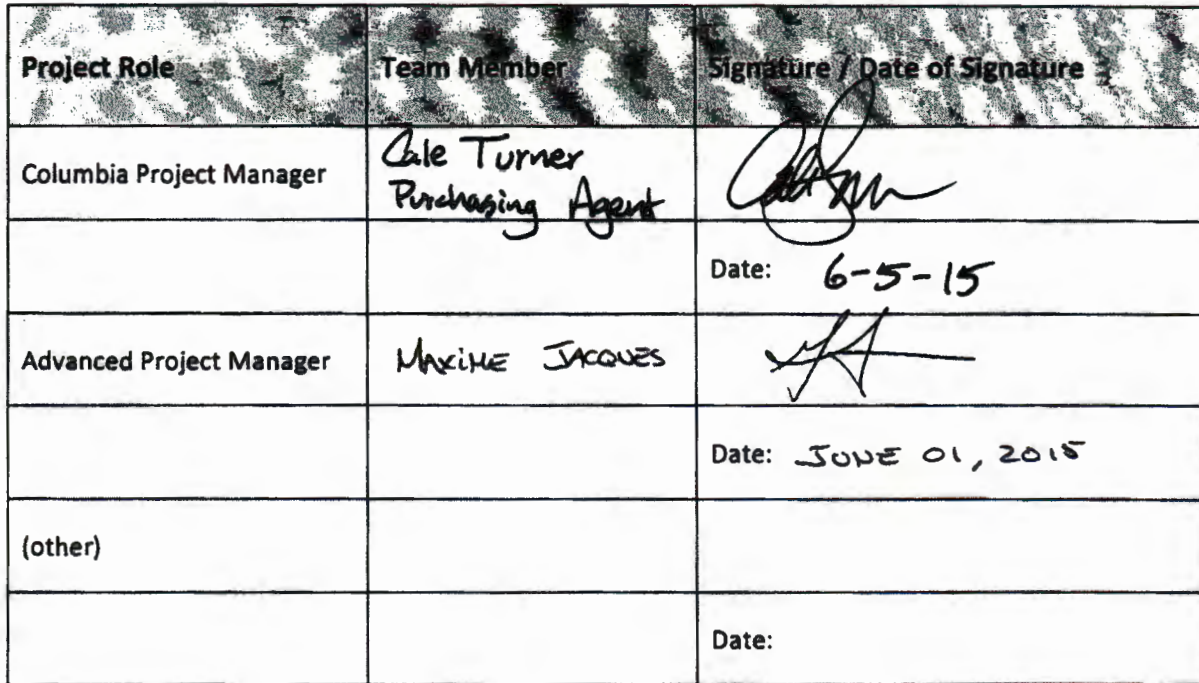 Project Role
Team Member
Signature / Date of Signature
Columbia Project Manager
Cale Turner
Purchasing Agent
Date: 6-5-15
Advanced Project Manager
MAXIME JACQUES
Date: JUNE 01, 2015
(other)
Date: